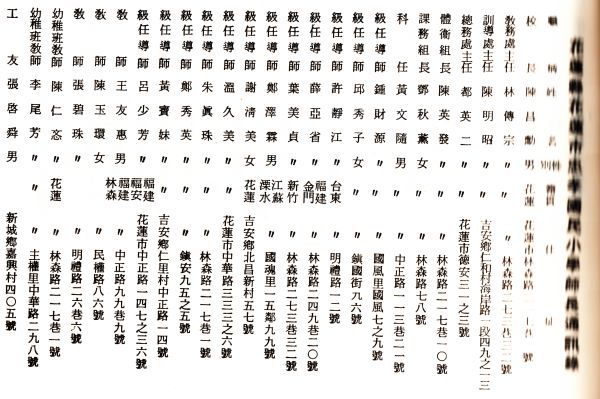 花蓮縣花蓮市忠孝國民小學師長通訊錄
職稱 姓名 性別 籍貫 住址
校長 陳昌勳 男 花蓮 花蓮市林森路 巷 號
教務處主任 林傳宗 〃 〃 〃 林森路二一七巷三二號
訓導處主任 陳明昭 〃 〃 吉安鄉仁和村海岸路一段四九之一三
總務處主任 都英二 〃 〃 花蓮市德安三一之三號
體衛組長 陳英發 〃 〃 〃 林森路二一七巷一〇號
課務組長 鄧秋薰 女 〃 〃 林森路七八號
科任 黃文隨 男 〃 〃 中正路一一三巷二一號
級任導師 鍾財源 〃 〃 〃 國風里國風七之九號
級任導師 邱秀子 女 〃 〃 鎮國街九六號
級任導師 許靜江 〃 台東 〃 明禮路一二號
級任導師 薛亞省 〃 福建金門 〃 林森路二四九巷二〇號
級任導師 葉美貞 〃 新竹 〃 林森路二七三巷三二號
級任導師 鄭澤霖 男 江蘇溧水 〃 國魂里一五鄰九九號
級任導師 謝清美 女 花蓮 吉安鄉北昌新村五七號
級任導師 溫久美 〃 〃 花蓮市中華路三三三之六號
級任導師 朱眞珠 〃 〃 〃 林森路二一一號
級任導師 鄭秀英 〃 〃 〃 鎮安九五之五號
級任導師 黃寶妹 〃 〃 吉安鄉仁里村中正路一四號
級任導師 呂少芳 〃 福建福安 花蓮市中正路一四七之三六號
教師 王友惠 男 福建林森 〃 中正路九九巷九號
教師 陳玉環 女 〃 〃 民權路八六號
教師 張碧珠 〃 〃 〃 明禮路二六巷六號
幼稚班教師 陳仁忞 〃 花蓮 〃 林森路二一七巷一號
幼稚班教師 李尾芳 〃 〃 〃 主權里中華路二九八號
工友 張啓舜 男 〃 新城鄉嘉興村四〇五號